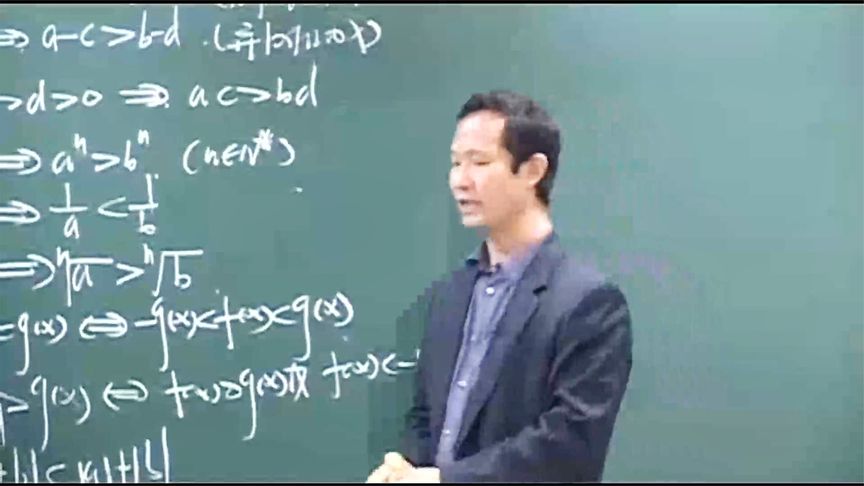 ⇒ a-c>b-d
>d>0 ⇒ ac>bd
⇒ aⁿ>bⁿ (n∈N*)
⇒ 1/a < 1/b
⇒ ⁿ√a > ⁿ√b
<g(x) ⇔ -g(x)<f(x)<g(x)
>g(x) ⇔ f(x)>g(x)或 f(x)<-
+b|≤|a|+|b|